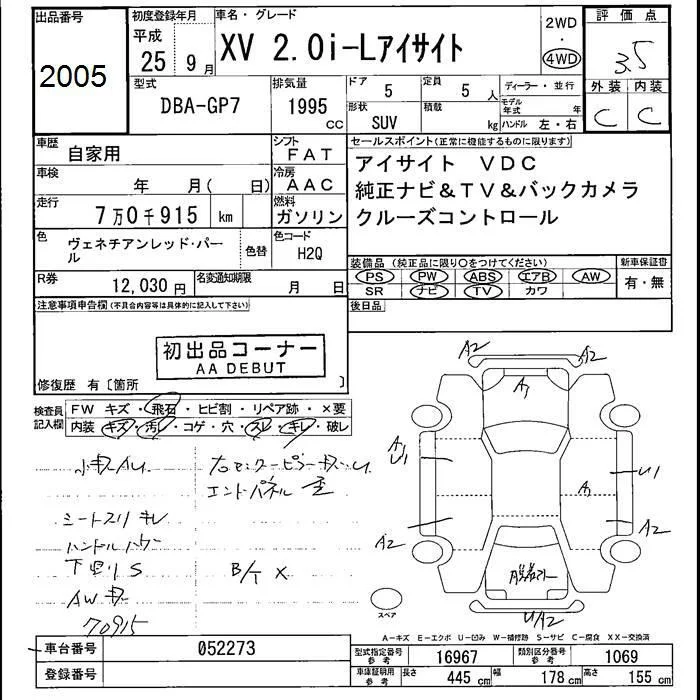 出品番号
2005
初度登録年月
平成
25 9月
車名・グレード
XV 2.0i-Lアイサイト
2WD
・
4WD
評価点
3.5
外装 内装
C C
型式
DBA-GP7
排気量
1995 cc
ドア
5
定員
5 人
形状
SUV
積載
kg
ディーラー・並行
モデル年式 年
ハンドル 左・右
車歴
自家用
シフト
FAT
車検
年 月( 日)
冷房
AAC
走行
7万0千915 km
燃料
ガソリン
色
ヴェネチアンレッド・パール
色替
色コード
H2Q
R券
12,030円
名変通知期限
月 日
セールスポイント(正常に機能するものに限ります)
アイサイト VDC
純正ナビ&TV&バックカメラ
クルーズコントロール
装備品 (純正品に限り〇をつけてください)
PS PW ABS エアB AW
SR ナビ TV カワ
新車保証書
有・無
後日品
注意事項申告欄(不具合内容等は具体的に記入して下さい)
初出品コーナー
AA DEBUT
修復歴 有〔箇所 〕
検査員記入欄
FW キズ・飛石・ヒビ割・リペア跡・×要
内装 キズ・汚レ・コゲ・穴・スレ・キレ・破レ
シートスリ キレ
エンドパネル
下回り S
AW
70915
A2
A2
A1
A1
U1
U1
A1
A2
A2
U/A2
スペア
A-キズ E-エクボ U-凹み W-補修跡 S-サビ C-腐食 XX-交換済
車台番号
052273
登録番号
型式指定番号
参考
16967
類別区分番号
参考
1069
車庫証明用
参考
長さ 445 cm
幅 178 cm
高さ 155 cm